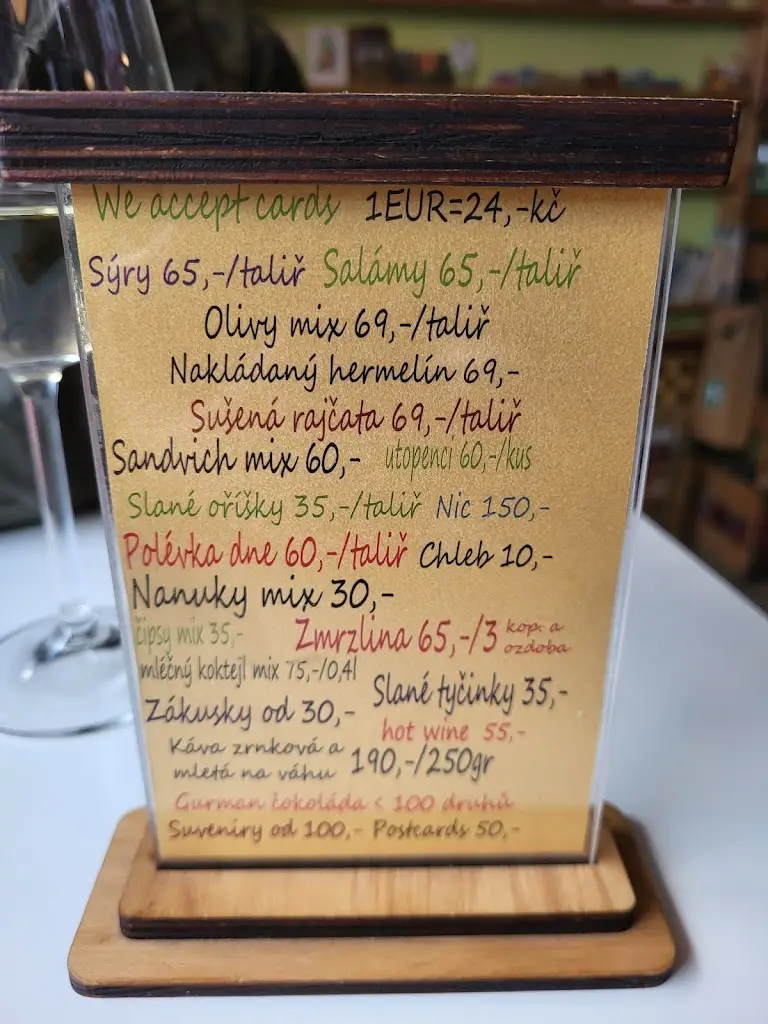 We accept cards 1EUR=24,-kč
Sýry 65,-/talíř Salámy 65,-/talíř
Olivy mix 69,-/talíř
Nakládaný hermelín 69,-
Sušená rajčata 69,-/talíř
Sandvich mix 60,- utopenci 60,-/kus
Slané oříšky 35,-/talíř Nic 150,-
Polévka dne 60,-/talíř Chleb 10,-
Nanuky mix 30,-
čipsy mix 35,- Zmrzlina 65,-/3 kop. a
ozdoba
mléčný koktejl mix 75,-/0,4l
Slané tyčinky 35,-
Zákusky od 30,-
hot wine 55,-
Káva zrnková a
mletá na váhu 190,-/250gr
Gurman čokoláda < 100 druhů
Suveniry od 100,- Postcards 50,-